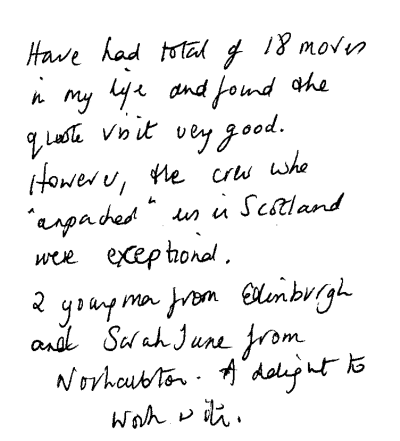 Have had total of 18 moves
in my life and found the
quote visit very good.
However, the crew who
"unpacked" us in Scotland
were exceptional.
2 young men from Edinburgh
and Sarah Jane from
A delight to
work with.